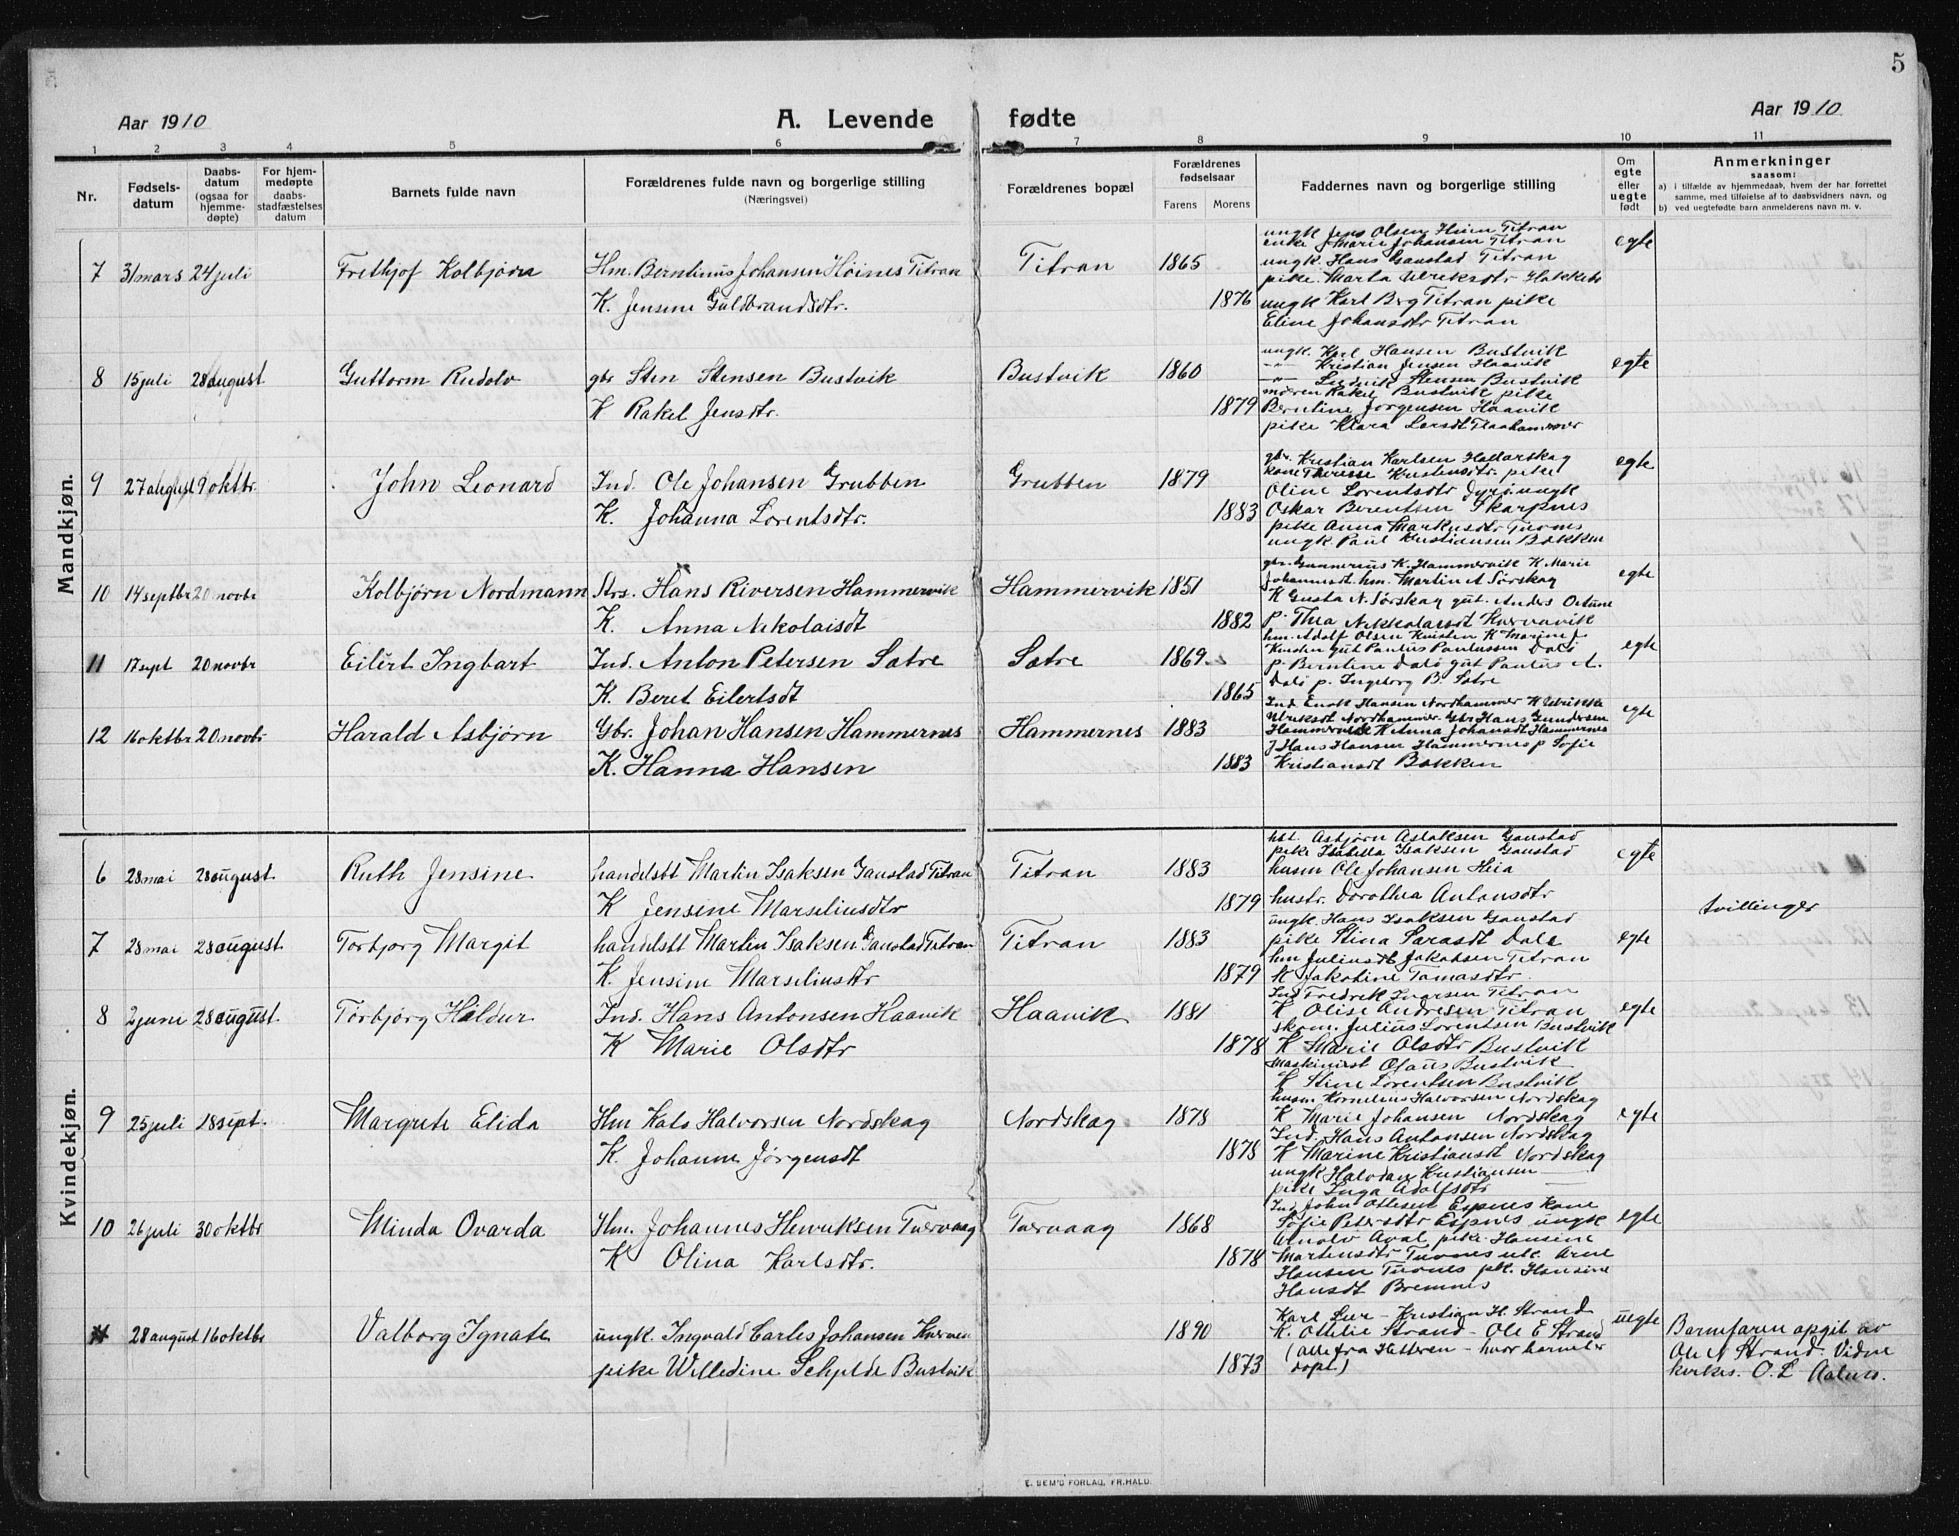 5
Aar 1910
A. Levende fødte
Aar 1910
1 2 3 4 5 6 7 8 9 10 11
Nr.
Fødsels-
datum
Daabs-
datum
(ogsaa for
hjemme-
døpte)
For hjem-
medøpte
daabs-
stadfæstelses
datum
Barnets fulde navn
Forældrenes fulde navn og borgerlige stilling
(Næringsvei)
Forældrenes bopæl
Forældrenes
fødselsaar
Farens Morens
Faddernes navn og borgerlige stilling
Om
egte
eller
uegte
født
Anmerkninger
saasom:
a) i tilfælde av hjemmedaab, hvem der har forrettet
samme, med tilføielse af to daabsvidners navn, og
b) ved uegtefødte barn anmelderens navn m. v.
Mandkjøn.
7 31 mars 24 juli Frethjof Kolbjørn Hm. Berntinus Johansen Höines Titran Titran 1865 egte
K. Jensine Guldbrandsdtr. 1876
ungk Jens Olsen Heim Titran
enke Marie Johansen Titran
ungk. Hans Gaustad Titran
pike. Marta Ulriksdtr
ungk Karl Berg Titran pike
Eline Johansdtr Titran
8 15 juli 28 august Guttorm Rudolv gbr Sten Stensen Bustvik Bustvik 1860 egte
K Rakel Jensdtr. 1879
ungk. Karl Hansen Bustvik
-"- Kristian Jensen Haavik
-"- Ludvik Stensen Bustvik
moren Rakel Bustvik pike
Berntine Jørgensen Haavik
pike Klara Larsdt
9 27 august 9 oktbr. John Leonard Ind. Ole Johansen Grubben Grubben 1879 egte
K. Johanna Lorentsdtr. 1883
gbr. Kristian Karlsen
kone Therese Kristensdtr. pike
Oline Lorentsdtr Dyrö ungk
Oskar Berentsen Skarpnes
pike Anna Markusdtr Tuvnes
ungk Paul Kristiansen Bakken
10 14 septbr 20 novbr Kolbjörn Nordmann Strs. Hans Riversen Hammervik Hammervik 1851 egte
K. Anna Nikolaisdt 1882
gbr. Gunnerius K. Hammervik K. Marie
Johannesdt. hm. Martin A Sørskag
K Gusta N. Sørskag gut. Anders
p. Thea Nikkolaisdt Kvernavik
11 17 sept 20 novbr Eilért Ingbart Ind. Anton Petersen Sætre Sætre 1869 egte
K. Beret Eilertsdt 1865
hm. Adolf Olsen Kvisten K Marine J.
Kvisten gut Paulus Paulussen Dalö
p. Berntine Dalö gut Paulus A.
Dalö p. Ingeborg B. Sætre
12 16 oktbr 20 novbr Harald Asbjørn Gbr. Johan Hansen Hammernes Hammernes 1883 egte
K. Hanna Hansen 1883
Ind. Enok Hansen Nordhammer K Ulrikke
Ulriksdt Nordhammer. Gbr Hans Gundersen
Hammervik K Anna Johansdt Hammernes
J Hans Hansen Hammernes p Sofie
Kristiansdt Bakken
Kvindekjøn.
6 28 mai 28 august Ruth Jensine handelsbt Martin Isaksen Gaustad Titran Titran 1883 egte
K Jensine Marseliusdtr 1879
hbt. Asbjørn Aslaksen Gaustad
pike Isabella Isaksen Gaustad
husm Ole Johansen Heia
hustr. Dorothea Antonsdtr
tvillinger
7 28 mai 28 august Torbjorg Margit handelsbt Martin Isaksen Gaustad Titran Titran 1883 egte
K. Jensine Marseliusdtr 1879
ungk. Hans Isaksen Gaustad
pike Stina Larasdt Dale
hm Juliusdt Jakobsen Titran
K Jakobine Tomasdtr.
8 2 juni 28 august Torbjörg Haldur Ind. Hans Antonsen Haavik Haavik 1881 egte
K Marie Olsdtr 1878
Ind Fredrik Ivarsen Titran
K Olise Andresen Titran
skom. Julius Lorentsen Bustvik
K Marie Olsdtr Bustvik
Maskinist Olaus Bustvik
K Stine Lorentsen Bustvik
9 25 juli 18 sept. Margrete Elida Hm Kalo Halvorsen Nordskag Nordskag 1878 egte
K. Johanne Jørgensdt 1878
husm Kornelius Halvorsen Nordskag
K Marie Johansen Nordskag
Ind. Hans Antonsen Nordskag
K Marine Kristiansdt Nordskag
ungk Halvdan Kristiansen -
pike Inga Adolfsdtr
10 26 juli 30 oktbr Minda Ovarda Hm. Johannes Henriksen Tvervaag Tvervaag 1868 egte
K Olina Karlsdtr. 1878
Ind John Ottesen Espnes kone
Sofie Petersdtr Espnes ungk
Arnolv Aval pike Hansine
Martinsdtr Tuvnes uk. Arne
Hansen Tuvnes pk. Hansine
Hansdt Bremnes
11 28 august 16 oktbr Valborg Ignate ungk. Ingvald Carles Johansen 1890 uegte
pike Willedine Schjelde Bustvik 1873
Karl Lur - Kristian H. Strand
K. Ottilie Strand - Ole E Strand
(alle fra Hitteren - hvor barnet er
døpt)
Barnefaren opgit av
Ole N Strand. Vidne
kirkes. O. L
E. SEM'S FORLAG, FR.HALD.